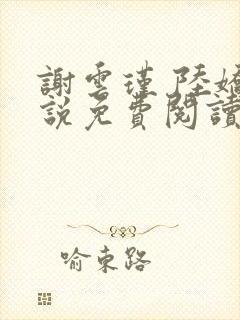 謝雲瑾 陸嬌
說免費閱讀
喻東路